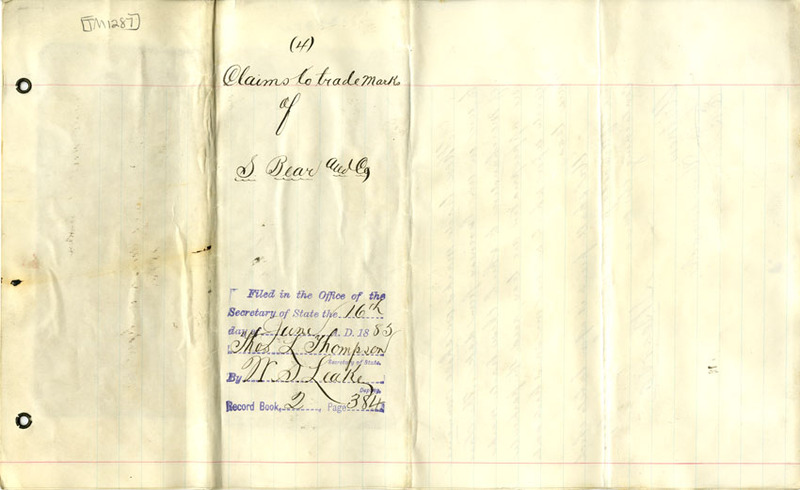 [TM1287]
(4)
Claims to trade mark
of
S Bear and Co
Filed in the Office of the
Secretary of State the 16th
day of June A. D. 1885
Thos L Thompson
Secretary of State.
By W S Leake
Deputy.
Record Book, 2, Page 384